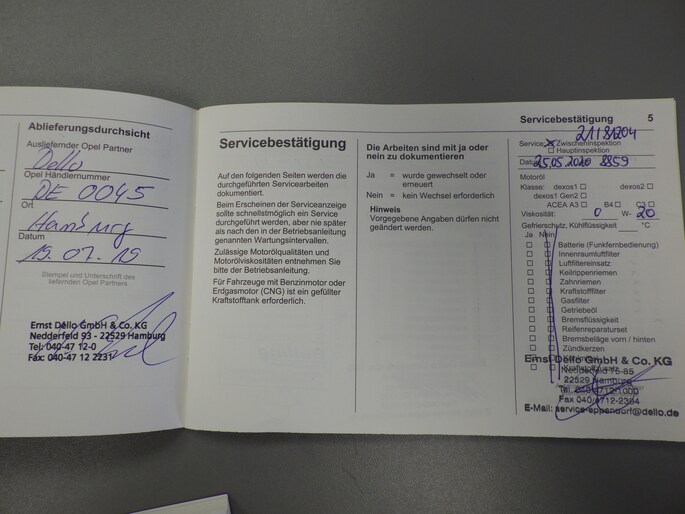 Ablieferungsdurchsicht
Ausliefernder Opel Partner
Dello
Opel Händlernummer
DE 0045
Ort
Hamburg
Datum
15.07.19
Stempel und Unterschrift des
liefernden Opel Partners
Ernst Dello GmbH & Co. KG
Nedderfeld 93 - 22529 Hamburg
Tel: 040-47 12-0
Fax: 040-47 12 2231
Servicebestätigung
Auf den folgenden Seiten werden die
durchgeführten Servicearbeiten
dokumentiert.
Beim Erscheinen der Serviceanzeige
sollte schnellstmöglich ein Service
durchgeführt werden, aber nie später
als nach den in der Betriebsanleitung
genannten Wartungsintervallen.
Zulässige Motorölqualitäten und
Motorölviskositäten entnehmen Sie
bitte der Betriebsanleitung.
Für Fahrzeuge mit Benzinmotor oder
Erdgasmotor (CNG) ist ein gefüllter
Kraftstofftank erforderlich.
Die Arbeiten sind mit ja oder
nein zu dokumentieren
Ja = wurde gewechselt oder
erneuert
Nein = kein Wechsel erforderlich
Hinweis
Vorgegebene Angaben dürfen nicht
geändert werden.
Servicebestätigung 5
Service: Zwischeninspektion
Hauptinspektion
25.05.2020 8859
Motoröl
Klasse: dexos1 dexos2
dexos1 Gen2
ACEA A3 B4 C3
Viskosität: 0 W- 20
Gefrierschutz, Kühlflüssigkeit °C
Ja Nein
Batterie (Funkfernbedienung)
Innenraumluftfilter
Luftfiltereinsatz
Keilrippenriemen
Zahnriemen
Kraftstofffilter
Gasfilter
Getriebeöl
Bremsflüssigkeit
Reifenreparaturset
Bremsbeläge vorn / hinten
Zündkerzen
Ernst Dello GmbH & Co. KG
Nedderfeld 75-85
22529 Hamburg
Fax 040/4712-2304
E-Mail: service-eppendorf@dello.de